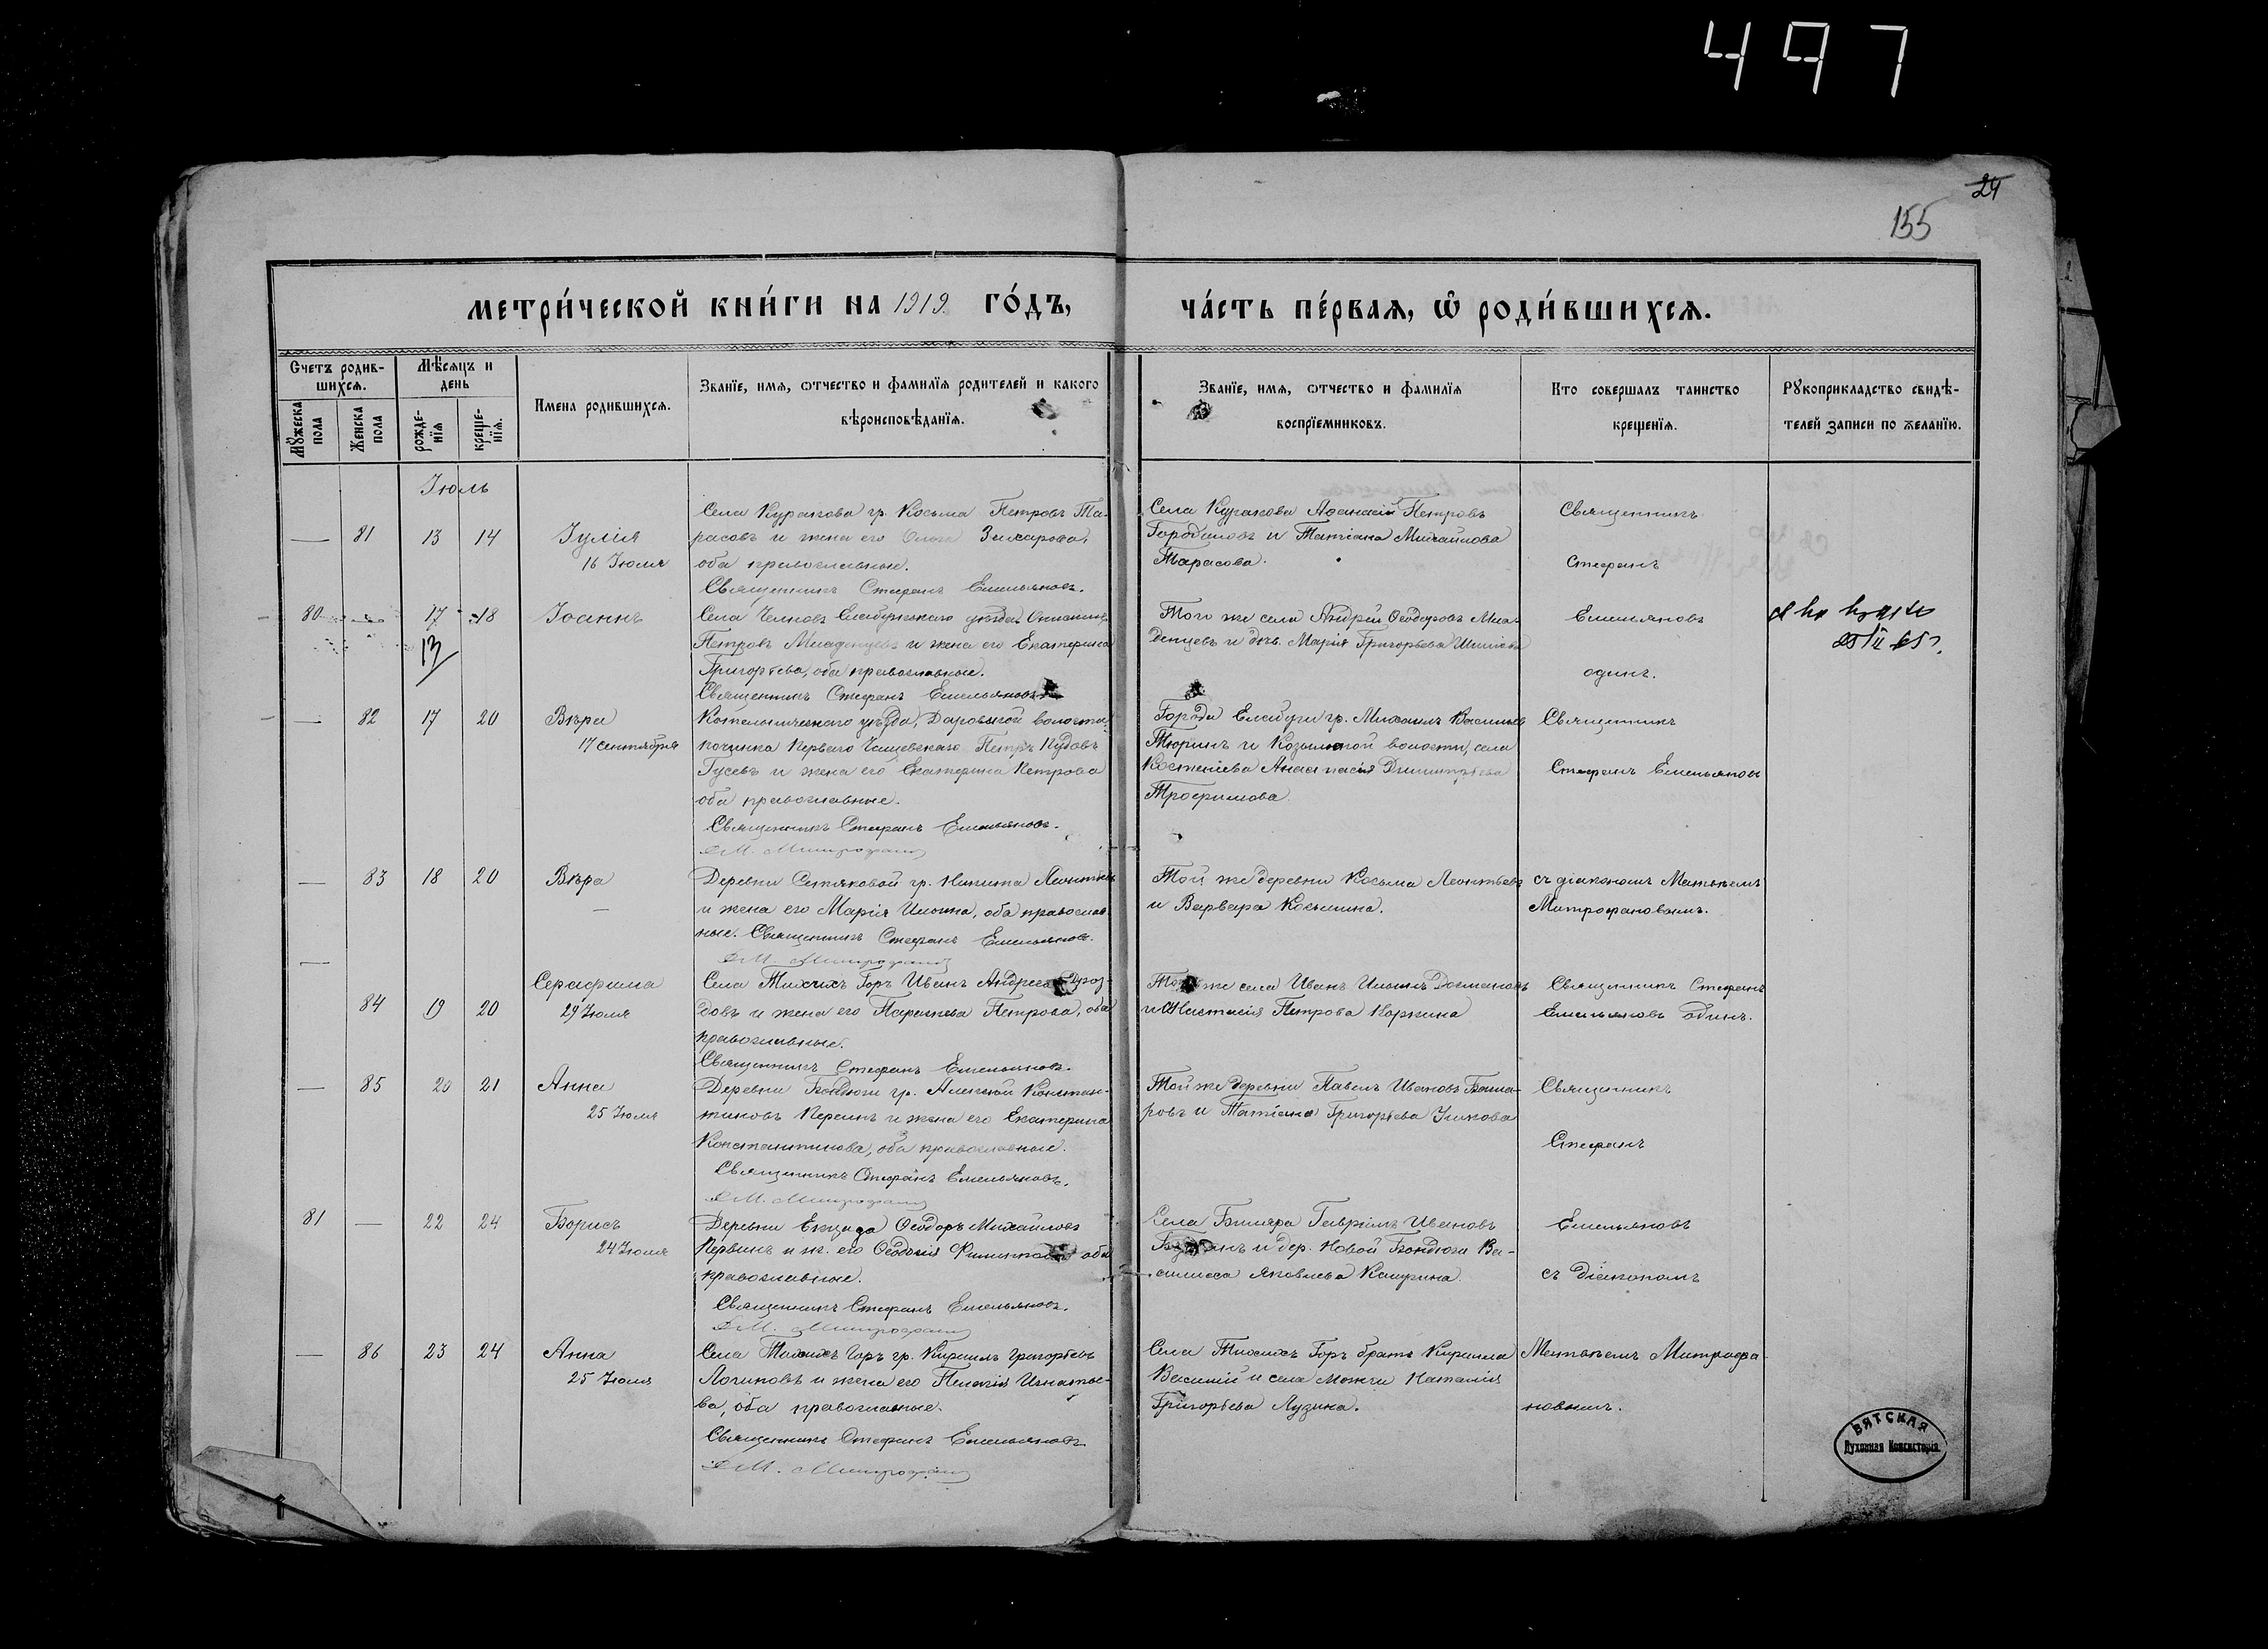 497
24
155
метри́ческой кни́ги на 1919 го́дъ,
ча́сть пе́рвая, ѿ роди́вшихся.
Счетъ родив-
шихся.
Мѣсяцъ и
день
Мꙋжеска
пола
Женска
пола
рожде-
нїя
креще-
нїя.
Имена родившихся.
Званїе, имя, ѡтчество и фамилїя родителей и какого
вѣроисповѣданїя.
Званїе, имя, ѡтчество и фамилїя
воспрїемниковъ.
Кто совершалъ таинство
крещенїя.
Рꙋкоприкладство свидѣ-
телей записи по желанїю.
Іюль
— 81 13 14 Іулія
16 Іюля
Села Куракова гр. Косьма Петровъ Та-
расовъ и жена его Ольга Захарова,
оба православные.
Священникъ Стефанъ Емельяновъ.
Села Куракова Афанасій Петровъ
и Татіана Михайлова
Тарасова.
Священникъ
Стефанъ
80 17 18 Іоаннъ
13
Села Челновъ Елабужскаго уѣзда
Петровъ Младенцевъ и жена его Екатерина
Григорьева, оба православные.
Священникъ Стефанъ Емельяновъ
Того же села Андрей Ѳеодоровъ Мла-
денцевъ и дочь Марія Григорьева
Емельяновъ
одинъ.
— 82 17 20 Вѣра
17 сентября
Котельническаго уѣзда, Даровской волости,
починка Перваго Петръ
Гусевъ и жена его Екатерина Петрова
оба православные.
Священникъ Стефанъ Емельяновъ.
Д. М. Митрофанов
Города Елабуги гр. Михаилъ Васильев
Тюринъ и Козыльской волости, села
Костенѣева Анастасія Димитріева
Трофимова.
Священникъ
Стефанъ Емельяновъ
— 83 18 20 Вѣра
—
Деревни Сетяковой гр. Никита Леонтьев
и жена его Марія Ильина, оба православ
ные. Священникъ Стефанъ Емельяновъ.
Д. М. Митрофанов
Той же деревни Косьма Леонтьевъ
и Варвара Косьмина.
съ діакономъ Матѳеемъ
Митрофановымъ.
—
84 19 20 Серафима
29 Іюля
Села Тихихъ Горъ Иванъ Андреев Дроз-
довъ и жена его Параскева Петрова, оба
православные.
Священникъ Стефанъ Емельяновъ.
Того же села Иванъ Ильинъ
и Анастасія Петрова Коркина
Священникъ Стефанъ
Емельяновъ одинъ.
— 85 20 21 Анна
25 Іюля
Деревни Бондюги гр. Алексѣй Констан-
тиновъ Першинъ и жена его Екатерина
Константинова, оба православные.
Священникъ Стефанъ Емельяновъ.
Д. М. Митрофанов
Той же деревни Павелъ Ивановъ
ровъ и Татіана Григорьева
Священникъ
Стефанъ
81 — 22 24 Борисъ
24 Іюля
Деревни Ѳеодоръ Михайловъ
Первинъ и ж. его Ѳеодосія оба
православные.
Священникъ Стефанъ Емельяновъ.
Д. М. Митрофанов
Села Гавріилъ Ивановъ
и дер. Новой Бондюги Ва-
силиса Яковлева Кашурина.
Емельяновъ
съ діакономъ
— 86 23 24 Анна
25 Іюля
Села Тихихъ Горъ гр. Кириллъ Григорьевъ
Логиновъ и жена его Пелагія Игнатье-
ва, оба православные.
Священникъ Стефанъ Емельяновъ
Д. М. Митрофанов
Села Тихихъ Горъ братъ Кирилла
Василий и села Можги Наталія
Григорьева Лузина.
Матѳеемъ Митрофа-
новымъ.
ВЯТСКАЯ
Духовная Консисторія.